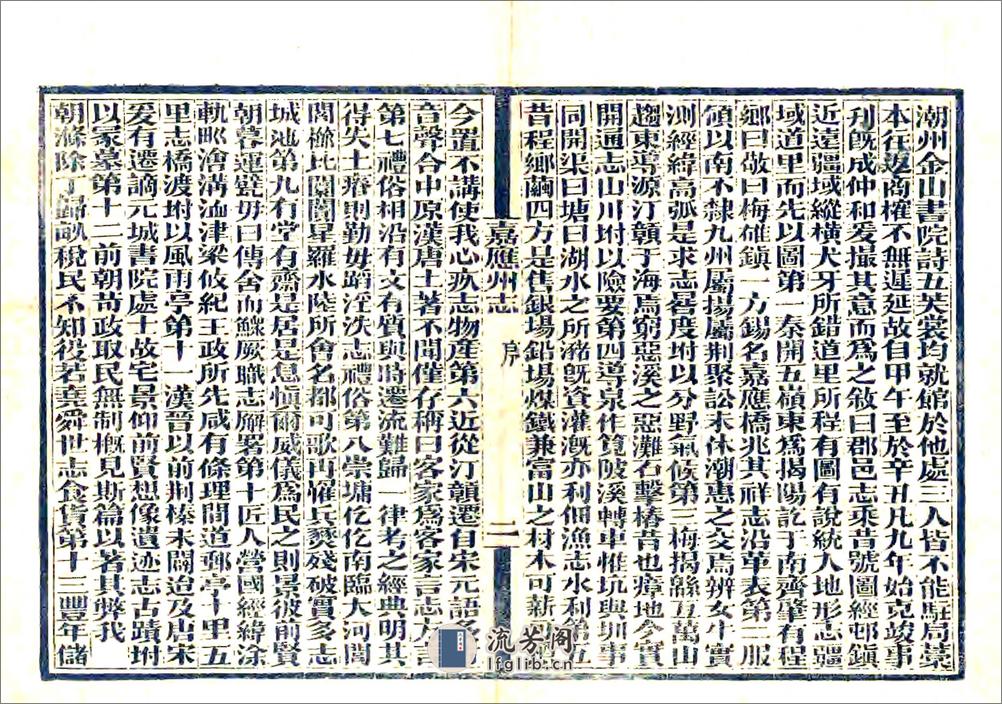 潮州金山書院詩五芙裳均就館於他處三人皆不能駐局藁
本往返商榷不無遲延故自甲午至於辛丑凡九年始克竣事
刋旣成仲和爰撮其意而爲之敘曰郡邑志乘昔號圖經邨鎭
近遠疆域縱橫犬牙所錯道里所程有圖有說統入地形志疆
域道里而先以圖第一秦開五嶺東爲揭陽訖于南齊肇有程
鄉曰敬曰梅確鎭一方錫名嘉應橋兆其祥志沿革表第二服
領以南不隸九州屬揚屬荆聚訟未休潮惠之交爲辨女牛實
測經緯高弧是求志晷度坿以分野氣候第三梅揭緜亙萬山
趨東導源汀贛于海焉窮惡溪之惡灘石擊樁昔也瘴地今實
開通志山川坿以險要第四導泉作筧陂溪轉車惟坑與圳事
同開渠曰塘曰湖水之所瀦旣資灌漑亦利佃漁志水利第五
昔程鄉薾四方是售銀場鉛場煤鐵兼富山之材木可薪
嘉應州志
序
二
今置不講使我心疚志物產第六近從汀贛遷自宋元語多
音聲合中原漢唐土著不聞僅存稱曰客家爲客家言志方言
第七禮俗相沿有文有質與時遷流難歸一律考之經典明其
得失土瘠則勤毋蹈淫泆志禮俗第八崇墉仡仡南臨大河閈
閎櫛比闤闠星羅水陸所會名揶可歌再罹兵燹殘破實多志
城池第九有堂有齋是居是息愼爾威儀爲民之則景彼前賢
朝暮運甓毋曰傳舍而鰥厥職志廨署第十匠人營國經緯涂
軌畛澮溝洫津梁攸紀王政所先咸有條理閒道郵亭十里五
里志橋渡坿以風雨亭第十一漢晉以前荆榛未闢迨及唐宋
爰有遷謫元城書院處士故宅景仰前賢想像遺迹志古蹟坿
以冢墓第十二前朝苛政取民無制槪見斯篇以著其弊我
朝滌除丁歸畝稅民不知役若堯舜世志食貨第十三豐年儲
流芳阁
lfglib.cn